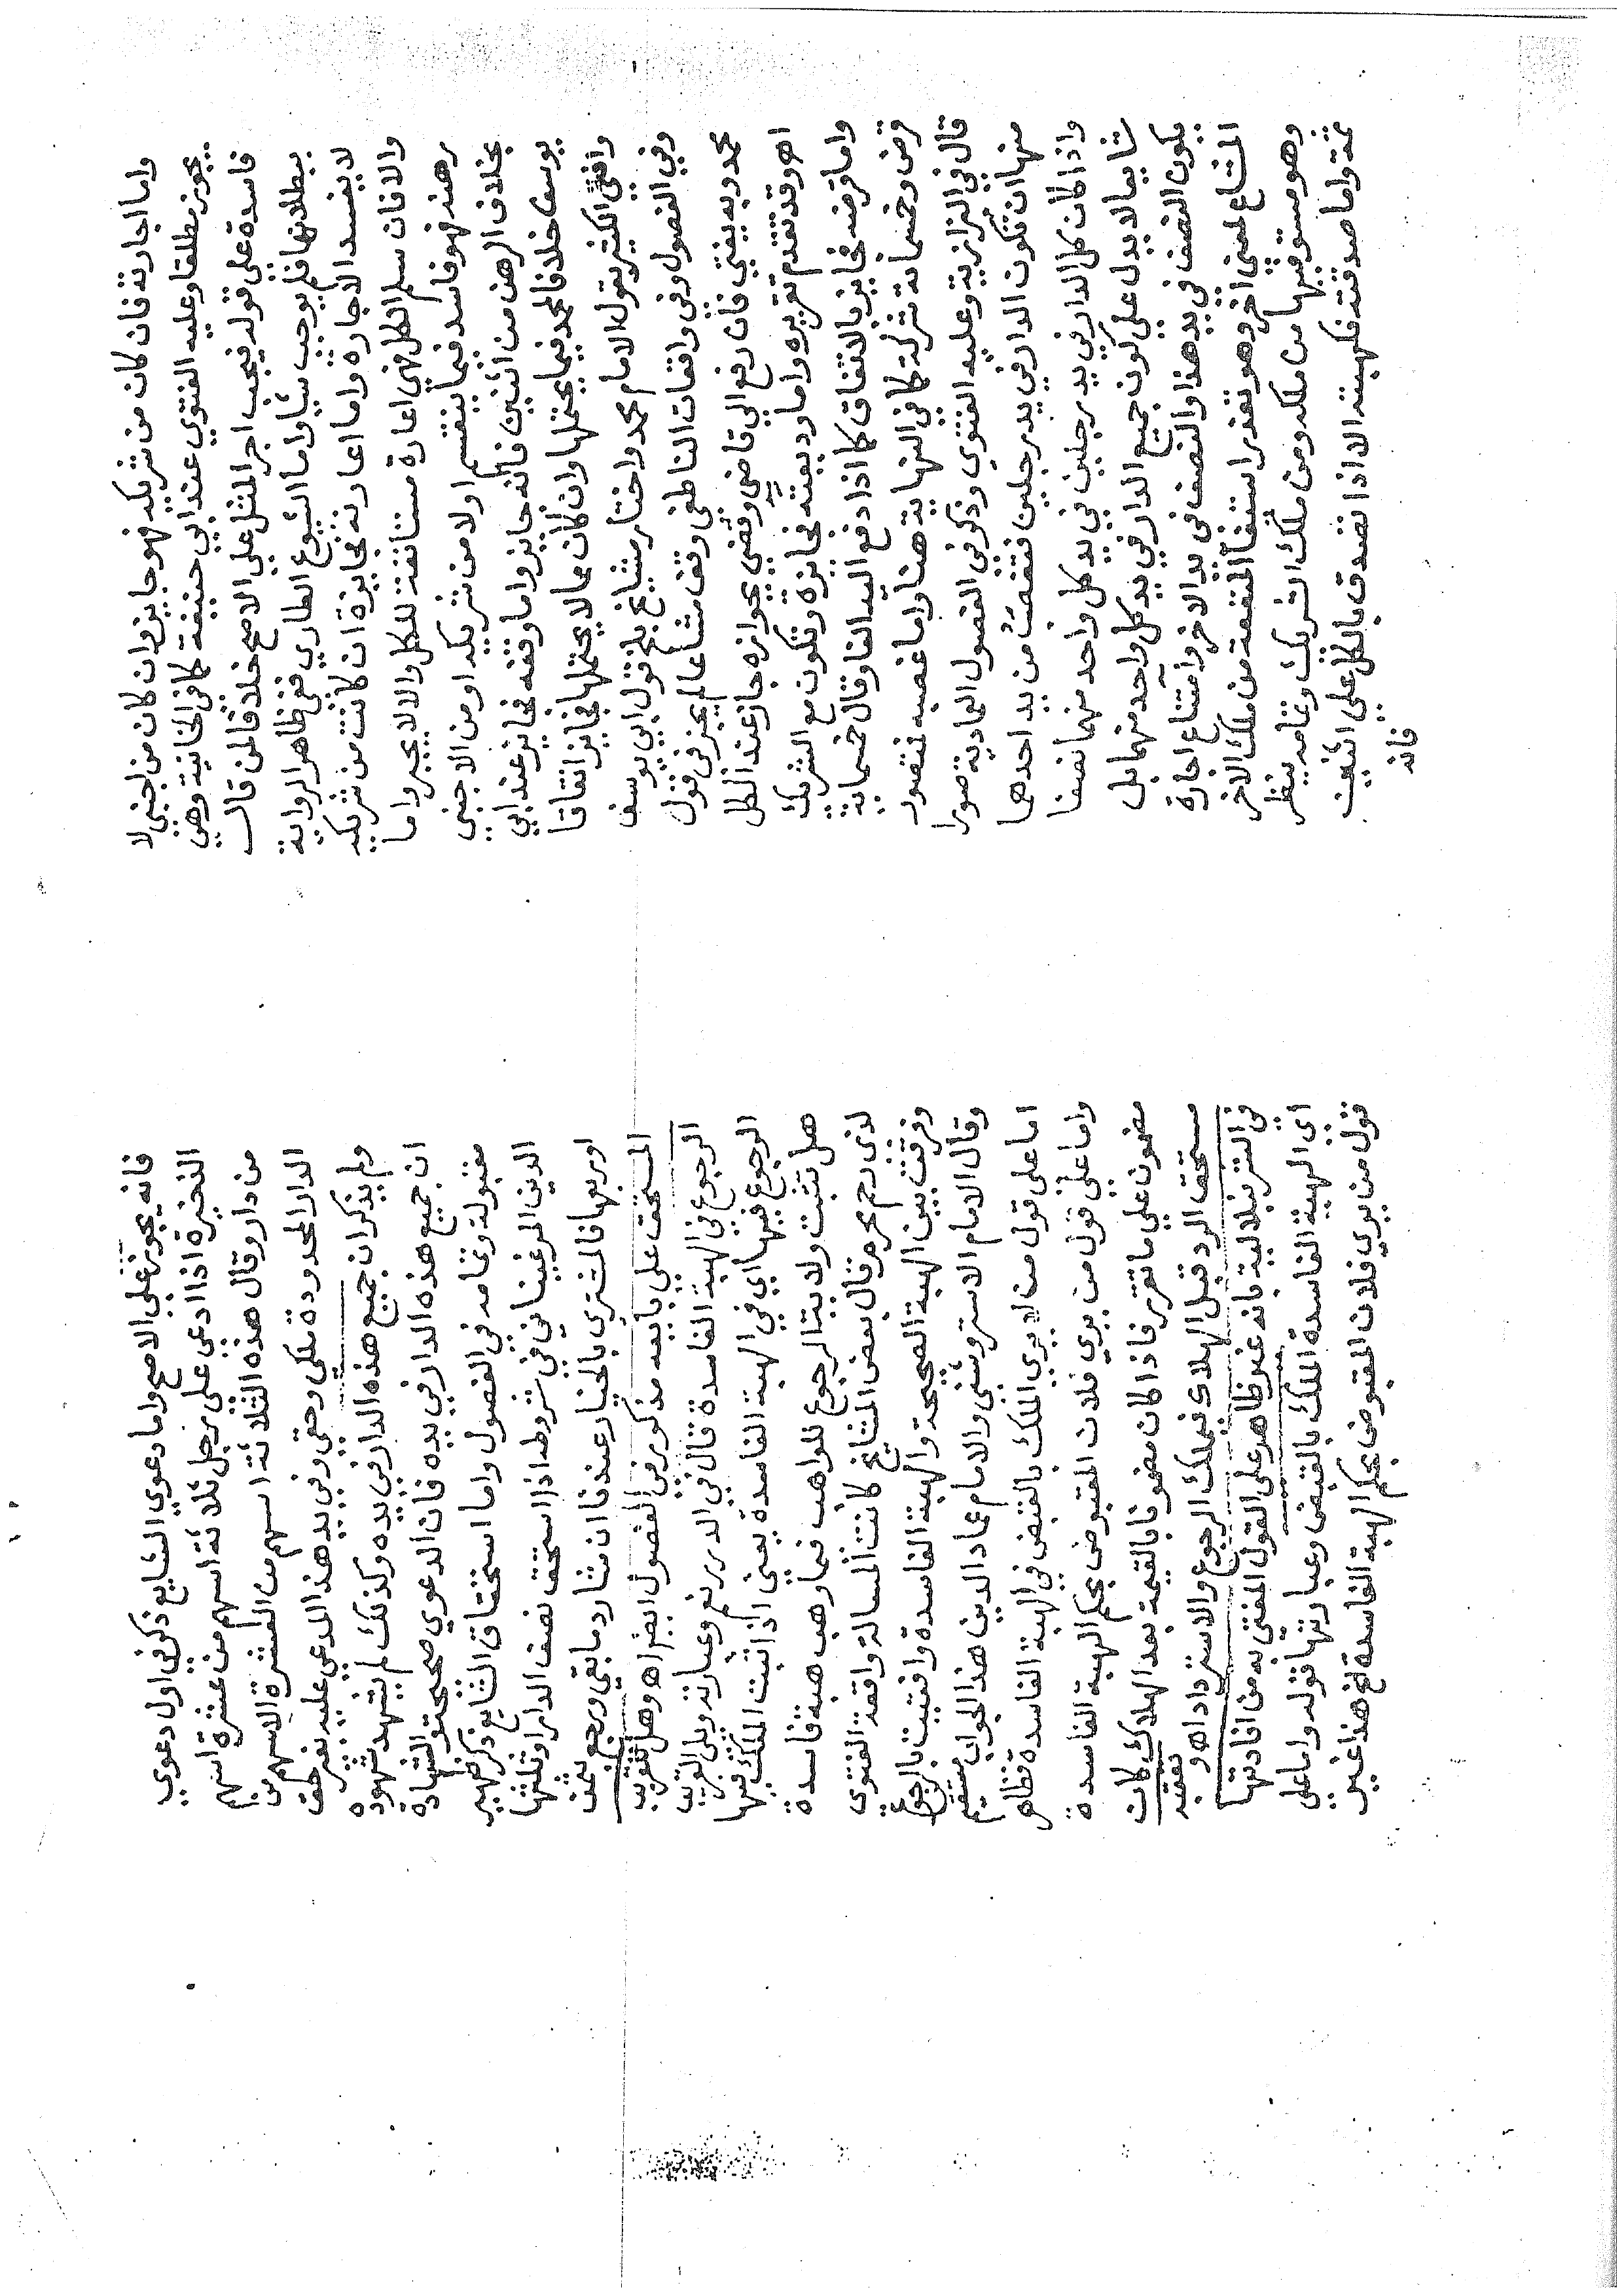 واما اجارته فان كان من شريكه فهو جايز وان كان من اجنبي لا
يجوز مطلقا وعليه الفتوي عند ابي حنيفة كما في الخانية وهي
فاسدة علي قوله فيجب اجر المثل علي الاصح خلافا لمن قال
ببطلانها فلم يوجب شيا واما الشيوع الطاري ففي ظاهر الرواية
لا يفسد الاجارة واما اعارته فجايزة ان كانت من شريكه
والا فان سلم الكل فهي اعارة مستانفة للكل والا لا يجبر واما
رهنه فهو فاسد فيما ينقسم اولا من شريكه او من الاجنبي
بخلاف الرهن من اثنين فانه جايز واما وقفه فجايز عند ابي
يوسف خلافا لمحمد فيما يحتملها وان كان مما لا يحتملها فجايز اتفاقا
وافتي الكثير بقول الامام محمد واختار مشايخ بلخ قول ابي يوسف
وفي الفصول وفي واقعات الناطفي وقف مشاعا لم يجز في قول
محمد وبه يفتي فان رفع الي قاضي وقضي بجوازه جاز عند الكل
اهـ وقد تقدم تقريره واما وديعته فجايزة وتكون مع الشريك
واما قرضه فجايز بالاتفاق كما اذا دفع اليه الفا وقال خمسماية
قرض وخمسماية شركة كما في النهاية هنا واما غصبه فمتصور
قال في البزازية وعليه الفتوي وذكر في الفصول العمادية صورا
منها ان تكون الدار في يد رجلين فتغصب من يد احدهما
واذا كان كل الدار في يد رجلين في يد كل واحد منهما نصفا
شايعا لا يدل علي كون جميع الدار في يد كل واحد منهما بل
يكون النصف في يد هذا والنصف في يد الاخر وامتناع اجارة
المشاع لمعني اخر وهو تعذر استيفا المنفعة من ملك الاخر
وهو مستوفيها من ملكه ومن ملك الشريك وتمامه ينظر
ثمة واما صدقته فكهبته الا اذا تصدق بالكل علي اثنين
فانه
فانه يجوز علي الاصح واما دعوي الشايع ذكر في اول دعوي
الذخيرة اذا ادعي علي رجل ثلاثة اسهم من عشرة اسهم
من دار وقال هذه الثلاثة اسهم من العشرة الاسهم من
الدار المحدودة ملكي وحقي وفي يد هذا المدعي عليه بغير حق
ولم يذكر ان جميع هذه الدار في يده وكذلك لم يشهد شهوده
ان جميع هذه الدار في يده فان الدعوي صحيحة والشهادة
مقبولة وتمامه في الفصول واما استحقاق الشايع ذكر ظهير
الدين المرغيناني في شروطه اذا استحق نصف الدار او ثلثها
او ربعها فالمشتري بالخيار عندنا ان شا رد ما بقي ورجع بثمن
المستحق علي بايعه مذكور في الفصول ايضا اهـ وهل للقريب
الرجوع في الهبة الفاسدة قال في الدرر نعم وعبارته وبلي القريب
الرجوع فيها اي في الهبة الفاسدة يعني اذا ثبت الملك فيها
هل تثبت ولاية الرجوع للواهب فيما وهب هبة فاسدة
لذي رحم محرم قال بعض المشايخ كانت المسالة واقعة الفتوي
وفرقت بين الهبة الصحيحة والهبة الفاسدة وافتيت بالرجوع
وقال الامام الاستروشني والامام عماد الدين هذا الجواب مستقيم
اما علي قول من لا يري الملك بالقبض في الهبة الفاسدة فظاهر
واما علي قول من يري فلان المقبوض بحكم الهبة الفاسدة
مضمون علي ما تقرر فاذا كان مضمونا بالقيمة بعد الهلاك كان
مستحق الرد قبل الهلاك فيملك الرجوع والاسترداد اهـ و تعقبه
في الشرنبلالية بانه غير ظاهر علي القول المفتي به من افادتها
اي الهبة الفاسدة الملك بالقبض وعبارتها قوله واما علي
قول من يري فلان المقبوض بحكم الهبة الفاسدة الخ هذا غير